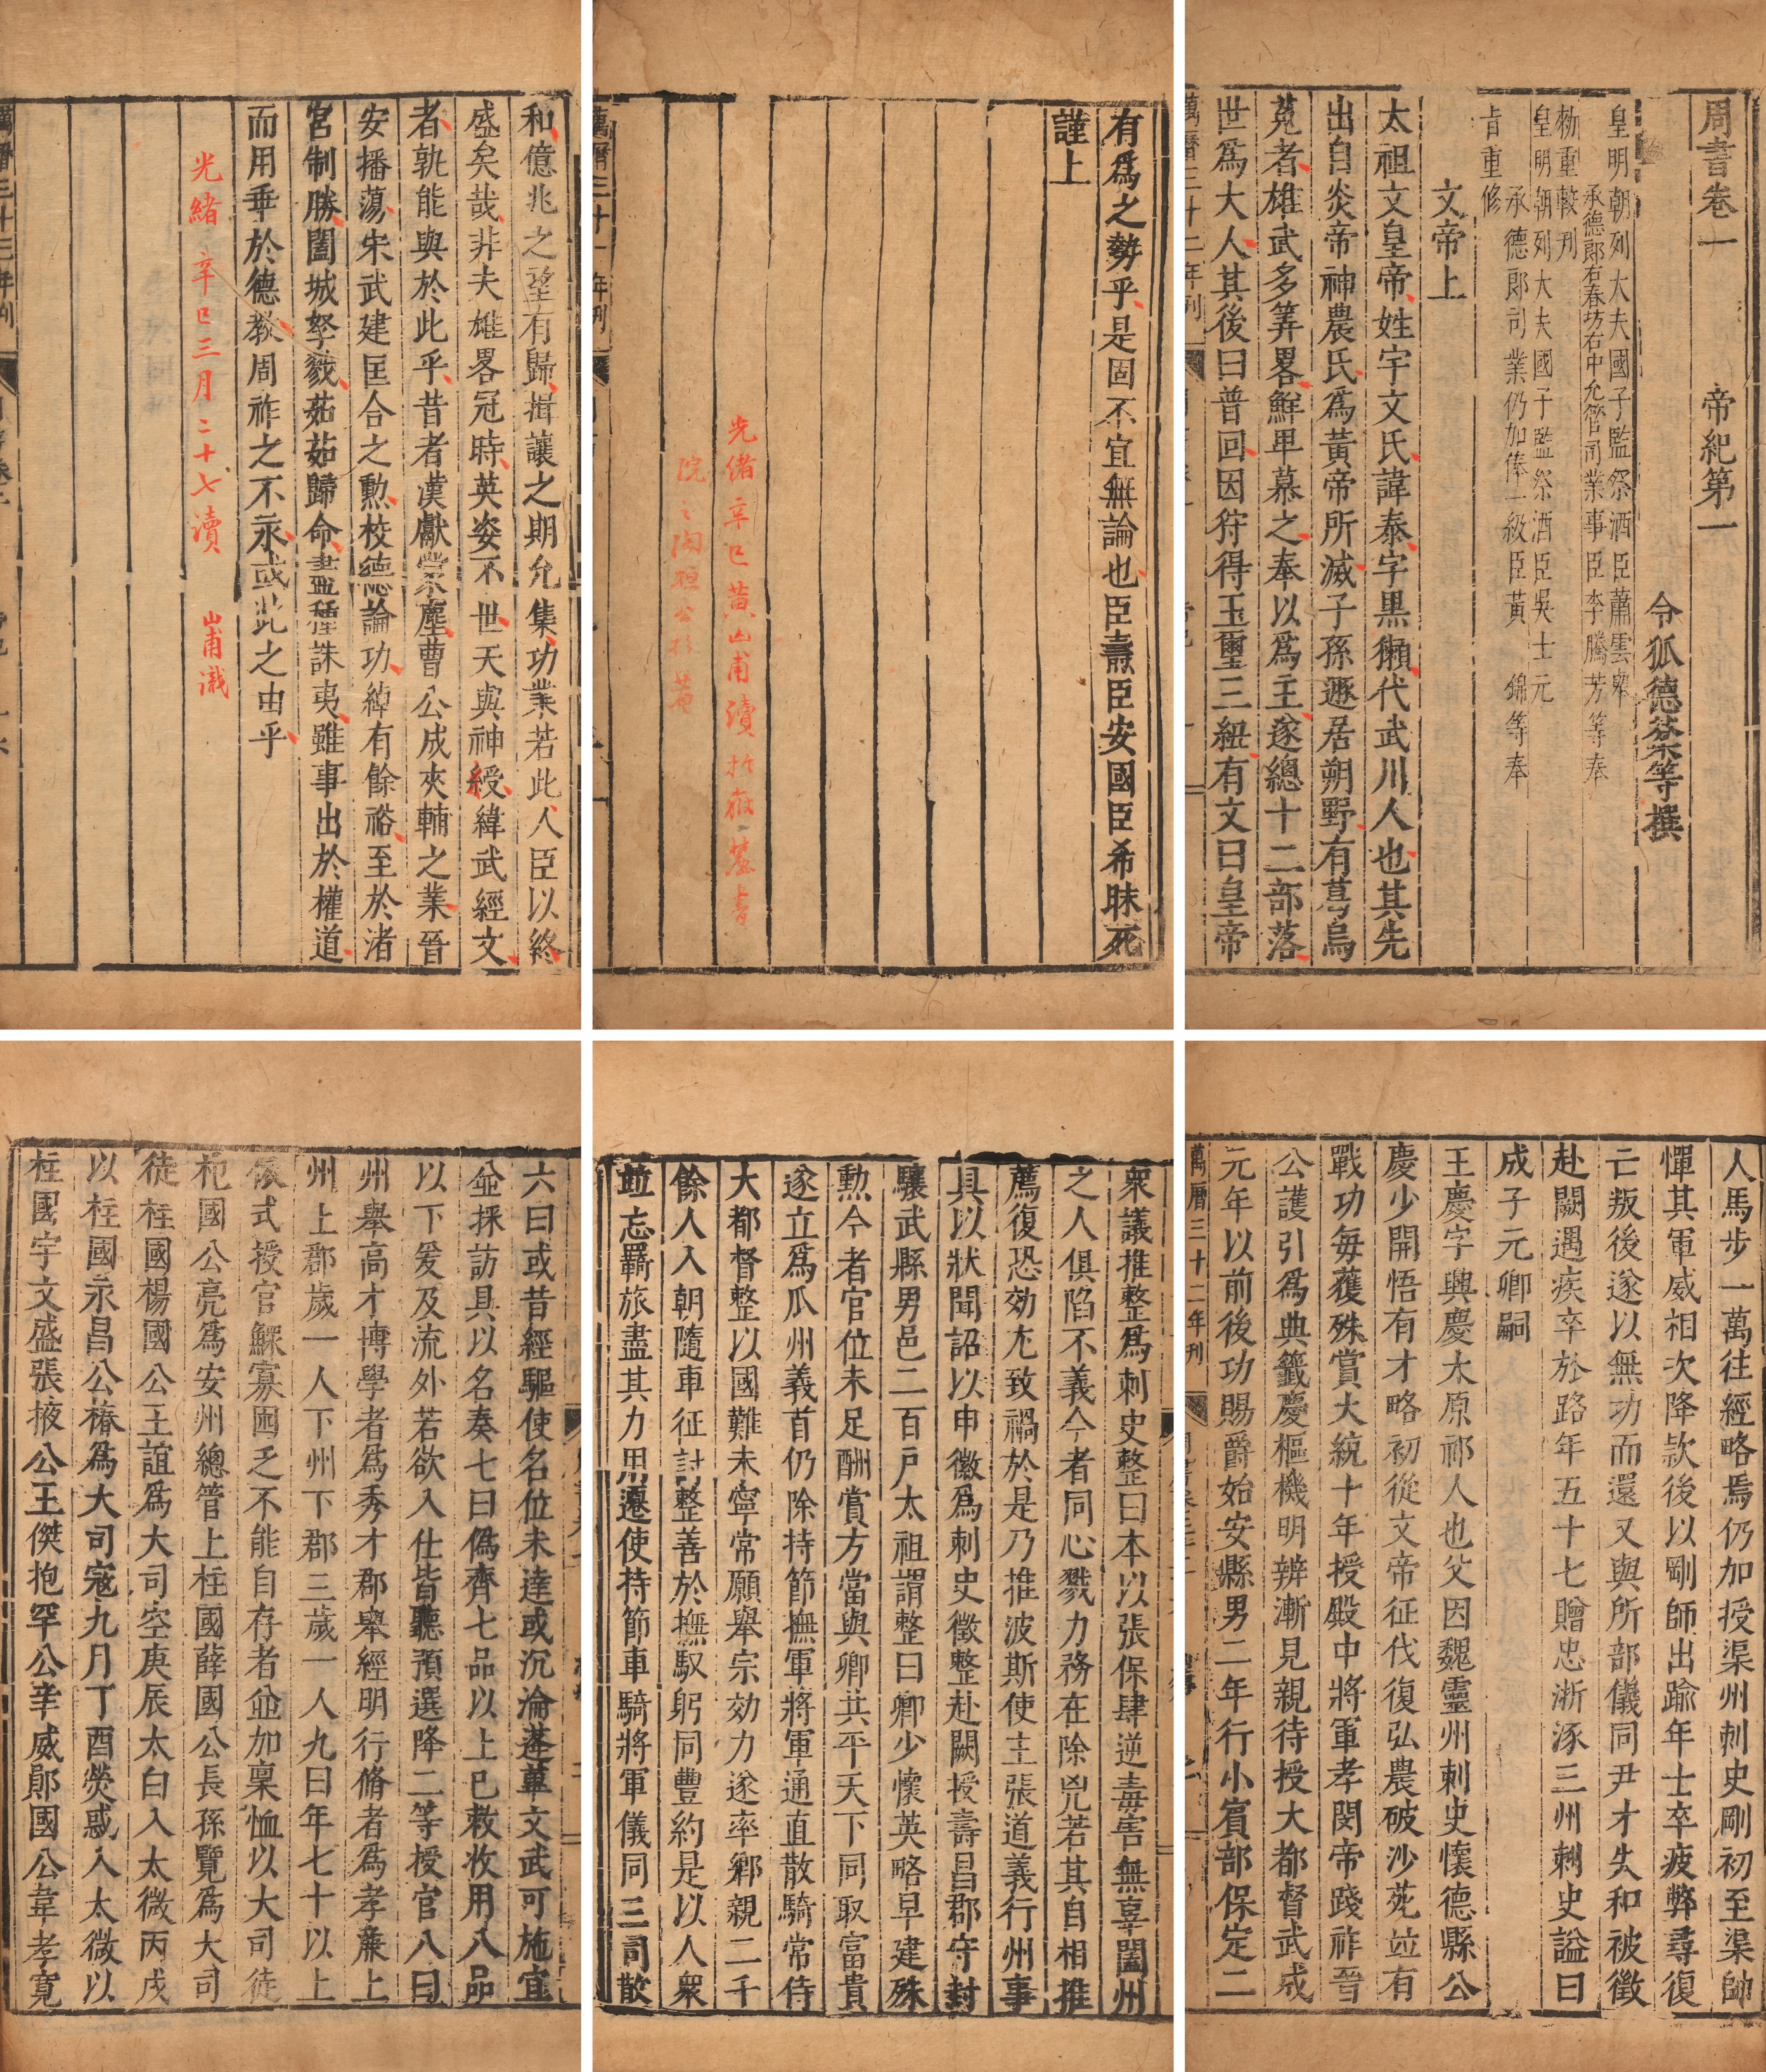 周書卷一 帝紀第一
令狐德棻等撰
皇明朝列大夫國子監祭酒臣蕭雲舉
承德郎右春坊右中允管司業事臣李騰芳等奉
勑重較刊
皇明朝列大夫國子監祭酒臣吳士元
承德郎司業仍加俸一級臣黃錦等奉
旨重修
文帝上
太祖文皇帝姓宇文氏諱泰字黑獺代武川人也其先
出自炎帝神農氏爲黃帝所滅子孫遯居朔野有葛烏
菟者雄武多筭畧鮮卑慕之奉以爲主遂總十二部落
世爲大人其後曰普回因狩得玉璽三紐有文曰皇帝
萬曆三十二年刊
有爲之勢乎是固不宜無論也臣燾臣安國臣希昧死
謹上
光緒辛巳黃山甫讀於
院之
萬曆三十一年刊
和億兆之望有歸揖讓之期允集功業若此人臣以終
盛矣哉非夫雄畧冠時英姿不世天與神授緯武經文
者孰能與於此乎昔者漢獻蒙塵曹公成夾輔之業晉
安播蕩宋武建匡合之勲校德論功綽有餘裕至於渚
宮制勝闔城孥戮茹茹歸命盡種誅夷雖事出於權道
而用乖於德教周祚之不永或此之由乎
光緒辛巳三月二十七讀 山甫識
萬曆三十三年刊
人馬步一萬往經略焉仍加授渠州刺史剛初至渠帥
憚其軍威相次降欵後以剛師出踰年士卒疲弊尋復
亡叛後遂以無功而還又與所部儀同尹才失和被徵
赴闕遇疾卒於路年五十七贈忠浙涿三州刺史謚曰
成子元卿嗣
王慶字興慶太原祁人也父因魏靈州刺史懷德縣公
慶少開悟有才略初從文帝征伐復弘農破沙苑並有
戰功每獲殊賞大統十年授殿中將軍孝閔帝踐祚晉
公護引爲典籤慶樞機明辨漸見親待授大都督武成
元年以前後功賜爵始安縣男二年行小賓部保定二
萬曆三十二年刊
衆議推整爲刺史整曰本以張保肆逆毒害無辜闔州
之人俱陷不義今者同心戮力務在除兇若其自相推
薦復恐効尤致禍於是乃推波斯使主張道義行州事
具以狀聞詔以申徽爲刺史徵整赴闕授壽昌郡守封
驤武縣男邑二百戶太祖謂整曰卿少懷英略早建殊
勲今者官位未足酬賞方當與卿共平天下同取富貴
遂立爲瓜州義首仍除持節撫軍將軍通直散騎常侍
大都督整以國難未寧常願舉宗効力遂率鄉親二千
餘人入朝隨車征討整善於撫馭躬同豐約是以人衆
竝忘羇旅盡其力用遷使持節車騎將軍儀同三司散
六曰或昔經驅使名位未達或沉淪蓬蓽文武可施宜
竝採訪具以名奏七曰僞齊七品以上已敕收用八品
以下爰及流外若欲入仕皆聽預選降二等授官八曰
州舉高才博學者爲秀才郡舉經明行脩者爲孝廉上
州上郡歲一人下州下郡三歲一人九曰年七十以上
依式授官鰥寡困乏不能自存者竝加稟恤以大司徒
杞國公亮爲安州總管上柱國薛國公長孫覽爲大司
徒柱國楊國公王誼爲大司空庚辰太白入太微丙戌
以柱國永昌公椿爲大司寇九月丁酉熒惑入太微以
柱國宇文盛張掖公王傑抱罕公辛威鄖國公韋孝寬